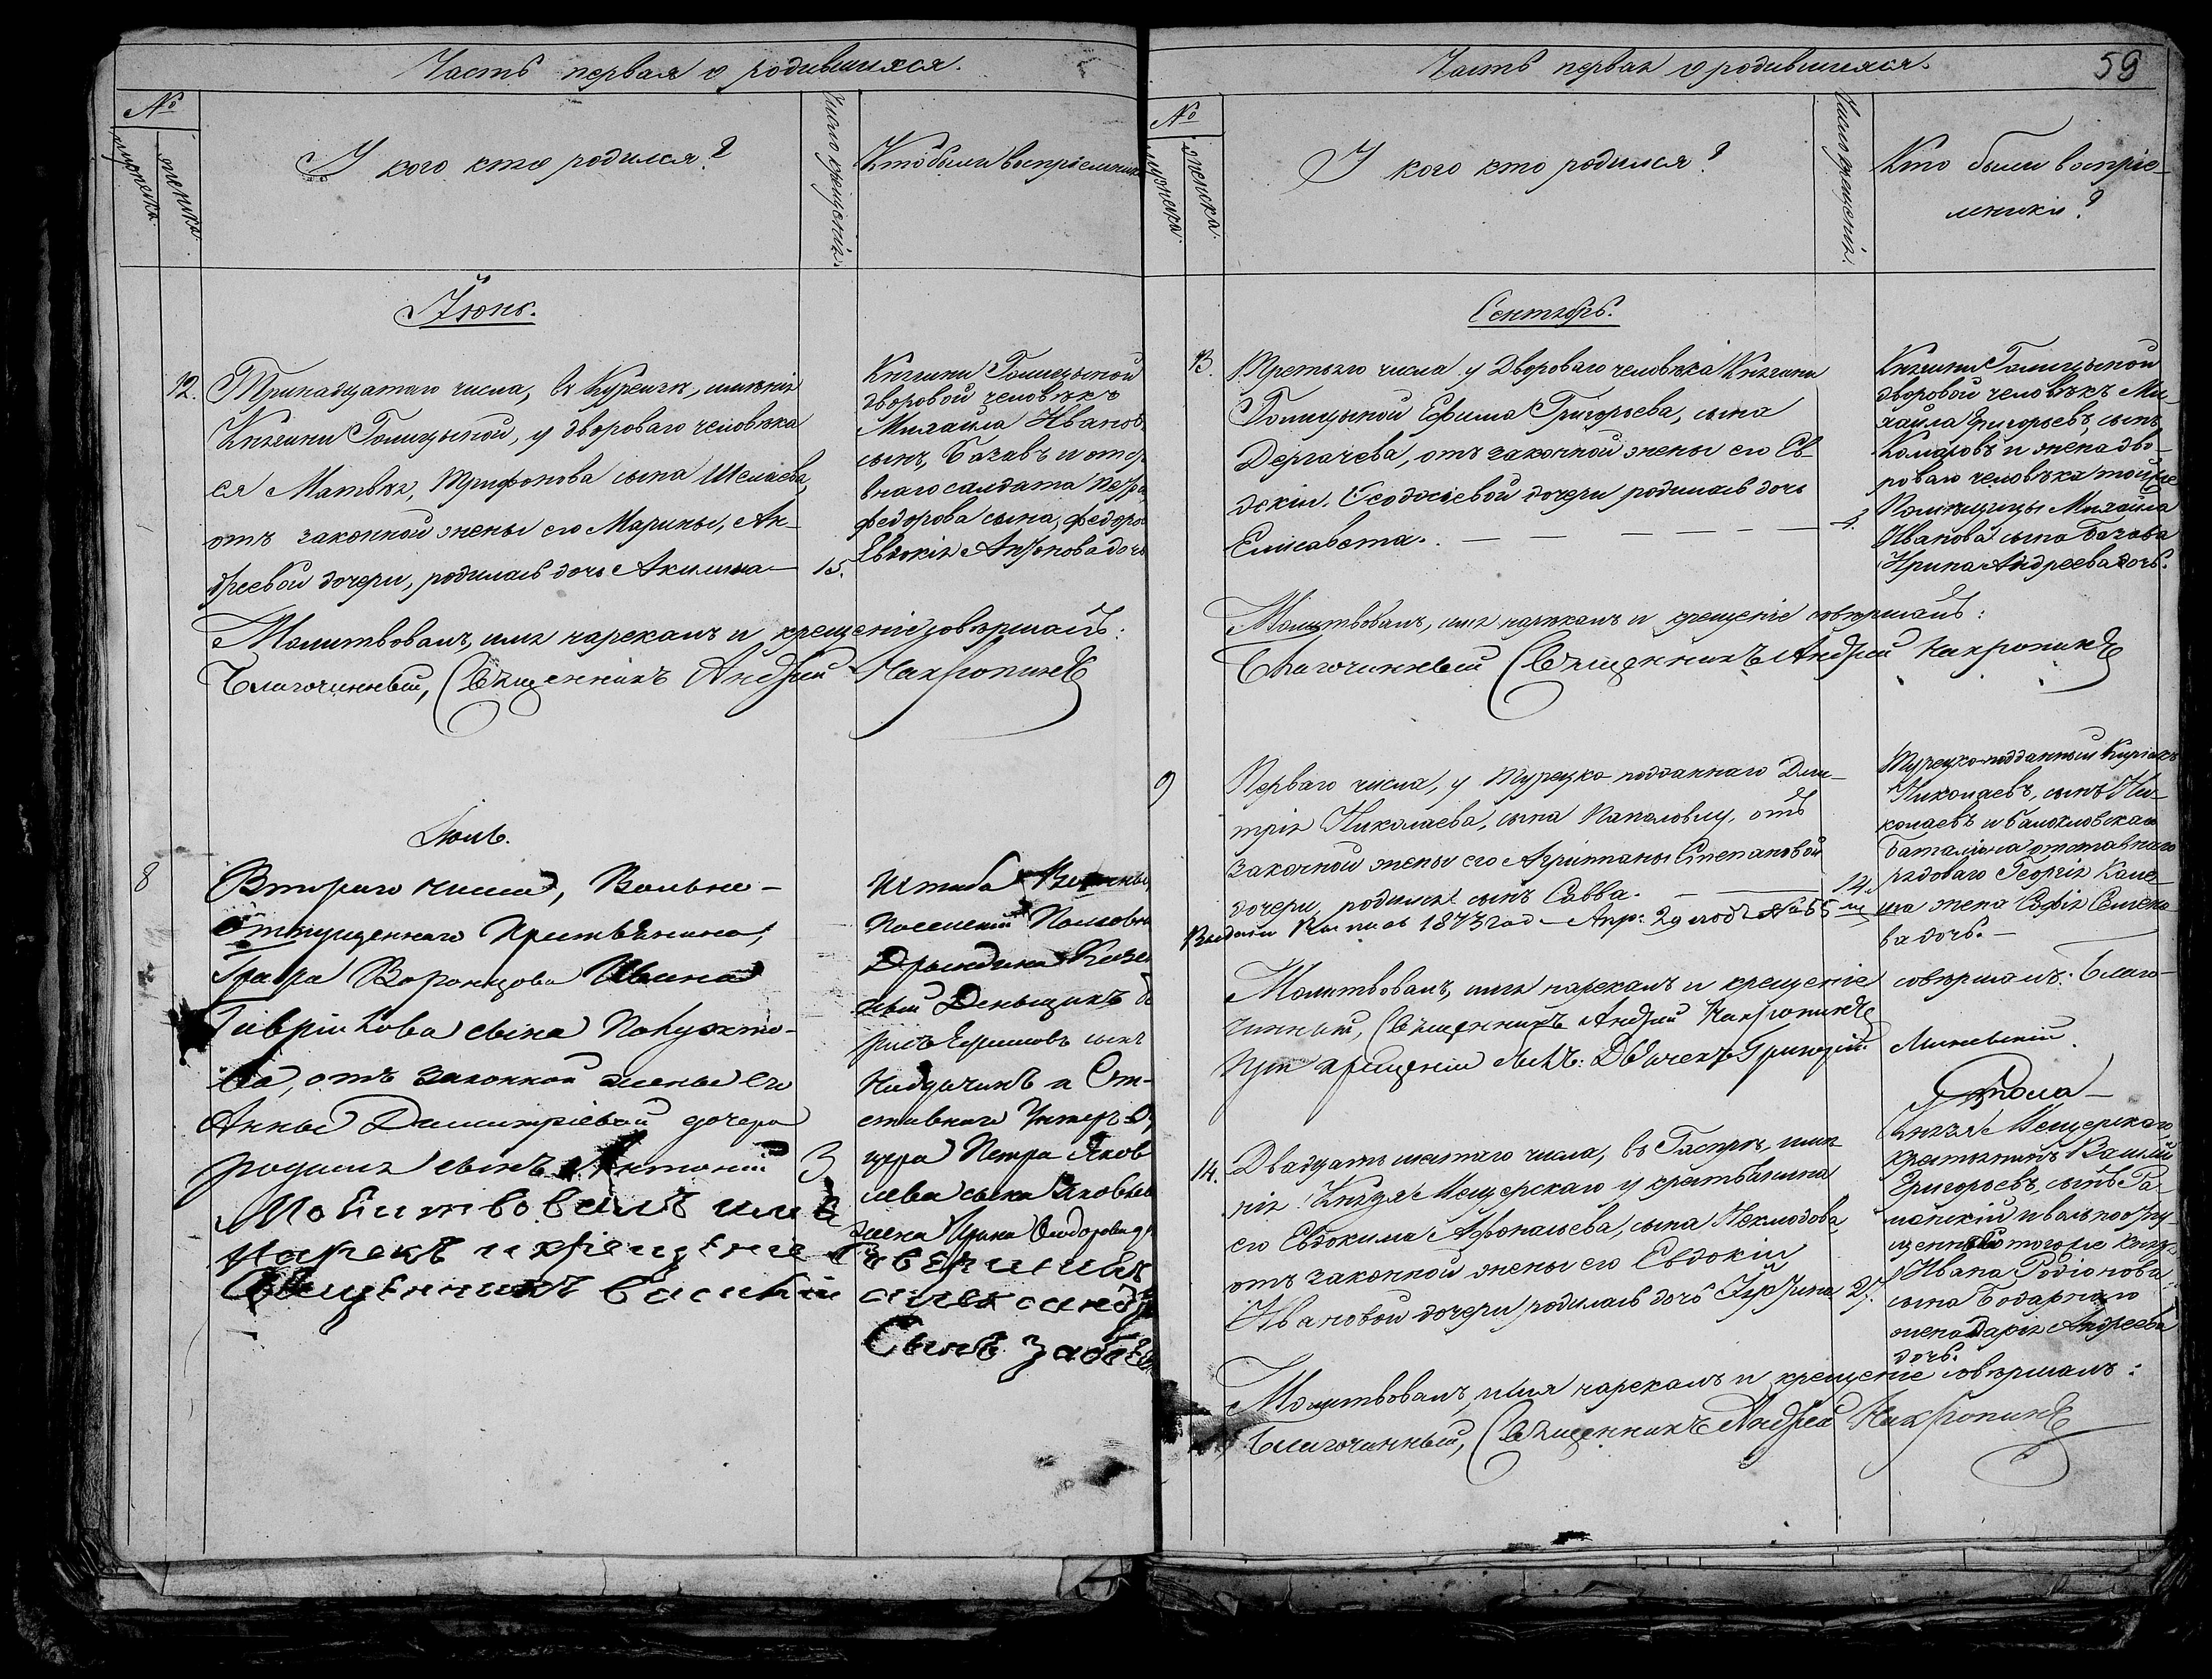 Часть первая о родившихся.
№
мужеска.
женска.
У кого кто родился?
Число крещенія.
Кто были воспріемники
Іюнь.
12.
Тринадцатаго числа, въ Курсугъ, имѣнія
Княгини Голицыной, у двороваго человѣка
ея Матвѣя, Трифонова сына
отъ законной жены его Марины, Ан-
дреевой дочери, родилась дочь Акилина —
15.
Княгини Голицыной
дворовой человѣкъ
Михаила Иванов
сынъ, Базавъ и отс
внаго солдата Петра
Федорова сына, Федоро
Евдокія Антонова дочь
Молитвовалъ, имя нарекалъ и крещеніе совершалъ:
Благочинный, Священникъ Андрей
Іюль.
8
Втораго числа, Вольно-
отпущеннаго Крестьянина,
Графа Воронцова Ивана
Гаврилова сына
ва, отъ законной жены его
Анны Димитріевой дочери
родился сынъ Антоній
3
Штаба
Поселенія Полковн
Казен
ный Деньщикъ
Ефимовъ сынъ
и От-
ставнаго Унтеръ-О
цера Петра Яков
лева сына Яковлев
жена Ирина Ѳеодорова д
Молитвовалъ имя
нарекъ и крещеніе совершилъ
Священникъ Василій Александр
Сынъ
Часть первая о родившихся.
59
№
мужеска.
женска.
У кого кто родился?
Число крещенія.
Кто были воспріе-
мники?
Сентябрь.
13.
Третьяго числа у Двороваго человѣка Княгини
Голицыной Ефима Григорьева, сына
Дергачева, отъ законной жены его Ев-
докіи Ѳеодосіевой дочери родилась дочь
Елисавета. — — — — —
4.
Княгини Голицыной
дворовой человѣкъ Ми-
хайла Григорьевъ, сынъ
Комаровъ и жена дво-
роваго человѣка той же
Помѣщицы Михайла
Иванова сына Базава
Ирина Андреева дочь.
Молитвовалъ, имя нарекалъ и крещеніе совершалъ:
Благочинный Священникъ Андрей
9
Перваго числа, у Турецко-подданнаго Дми-
трія Николаева, сына Папаловлу, отъ
законной жены его Агриппины Степановой
дочери, родился сынъ Савва. —
14.
Турецко-подданный Киріакъ
Николаевъ, сынъ Ни-
колаевъ и балаклавскаго
баталіона отставнаго
рядоваго Георгія
жена Софія Семено-
ва дочь. —
1873 год Апр: 29 подъ № 55
Молитвовалъ, имя нарекалъ и крещеніе совершалъ: Благо-
чинный, Священникъ Андрей
При крещеніи былъ: Дьячекъ Григорій
14.
Двадцать шестаго числа, въ Гаспрѣ, имѣ-
нія Князя Мещерскаго у крестьянина
его Евдокима Афонасьева, сына Неклюдова,
отъ законной жены его Евдокіи
Ивановой дочери родилась дочь
27.
Князя Мещерскаго,
крестьянинъ Василій
Григорьевъ, сынъ Ра-
манскій и вольноотпу-
щеннаго тогоже Князя
Ивана Родіонова
сына Бодарнаго
жена Дарія Андреева
дочь.
Молитвовалъ, имя нарекалъ и крещеніе совершалъ:
Благочинный, Священникъ Андрей